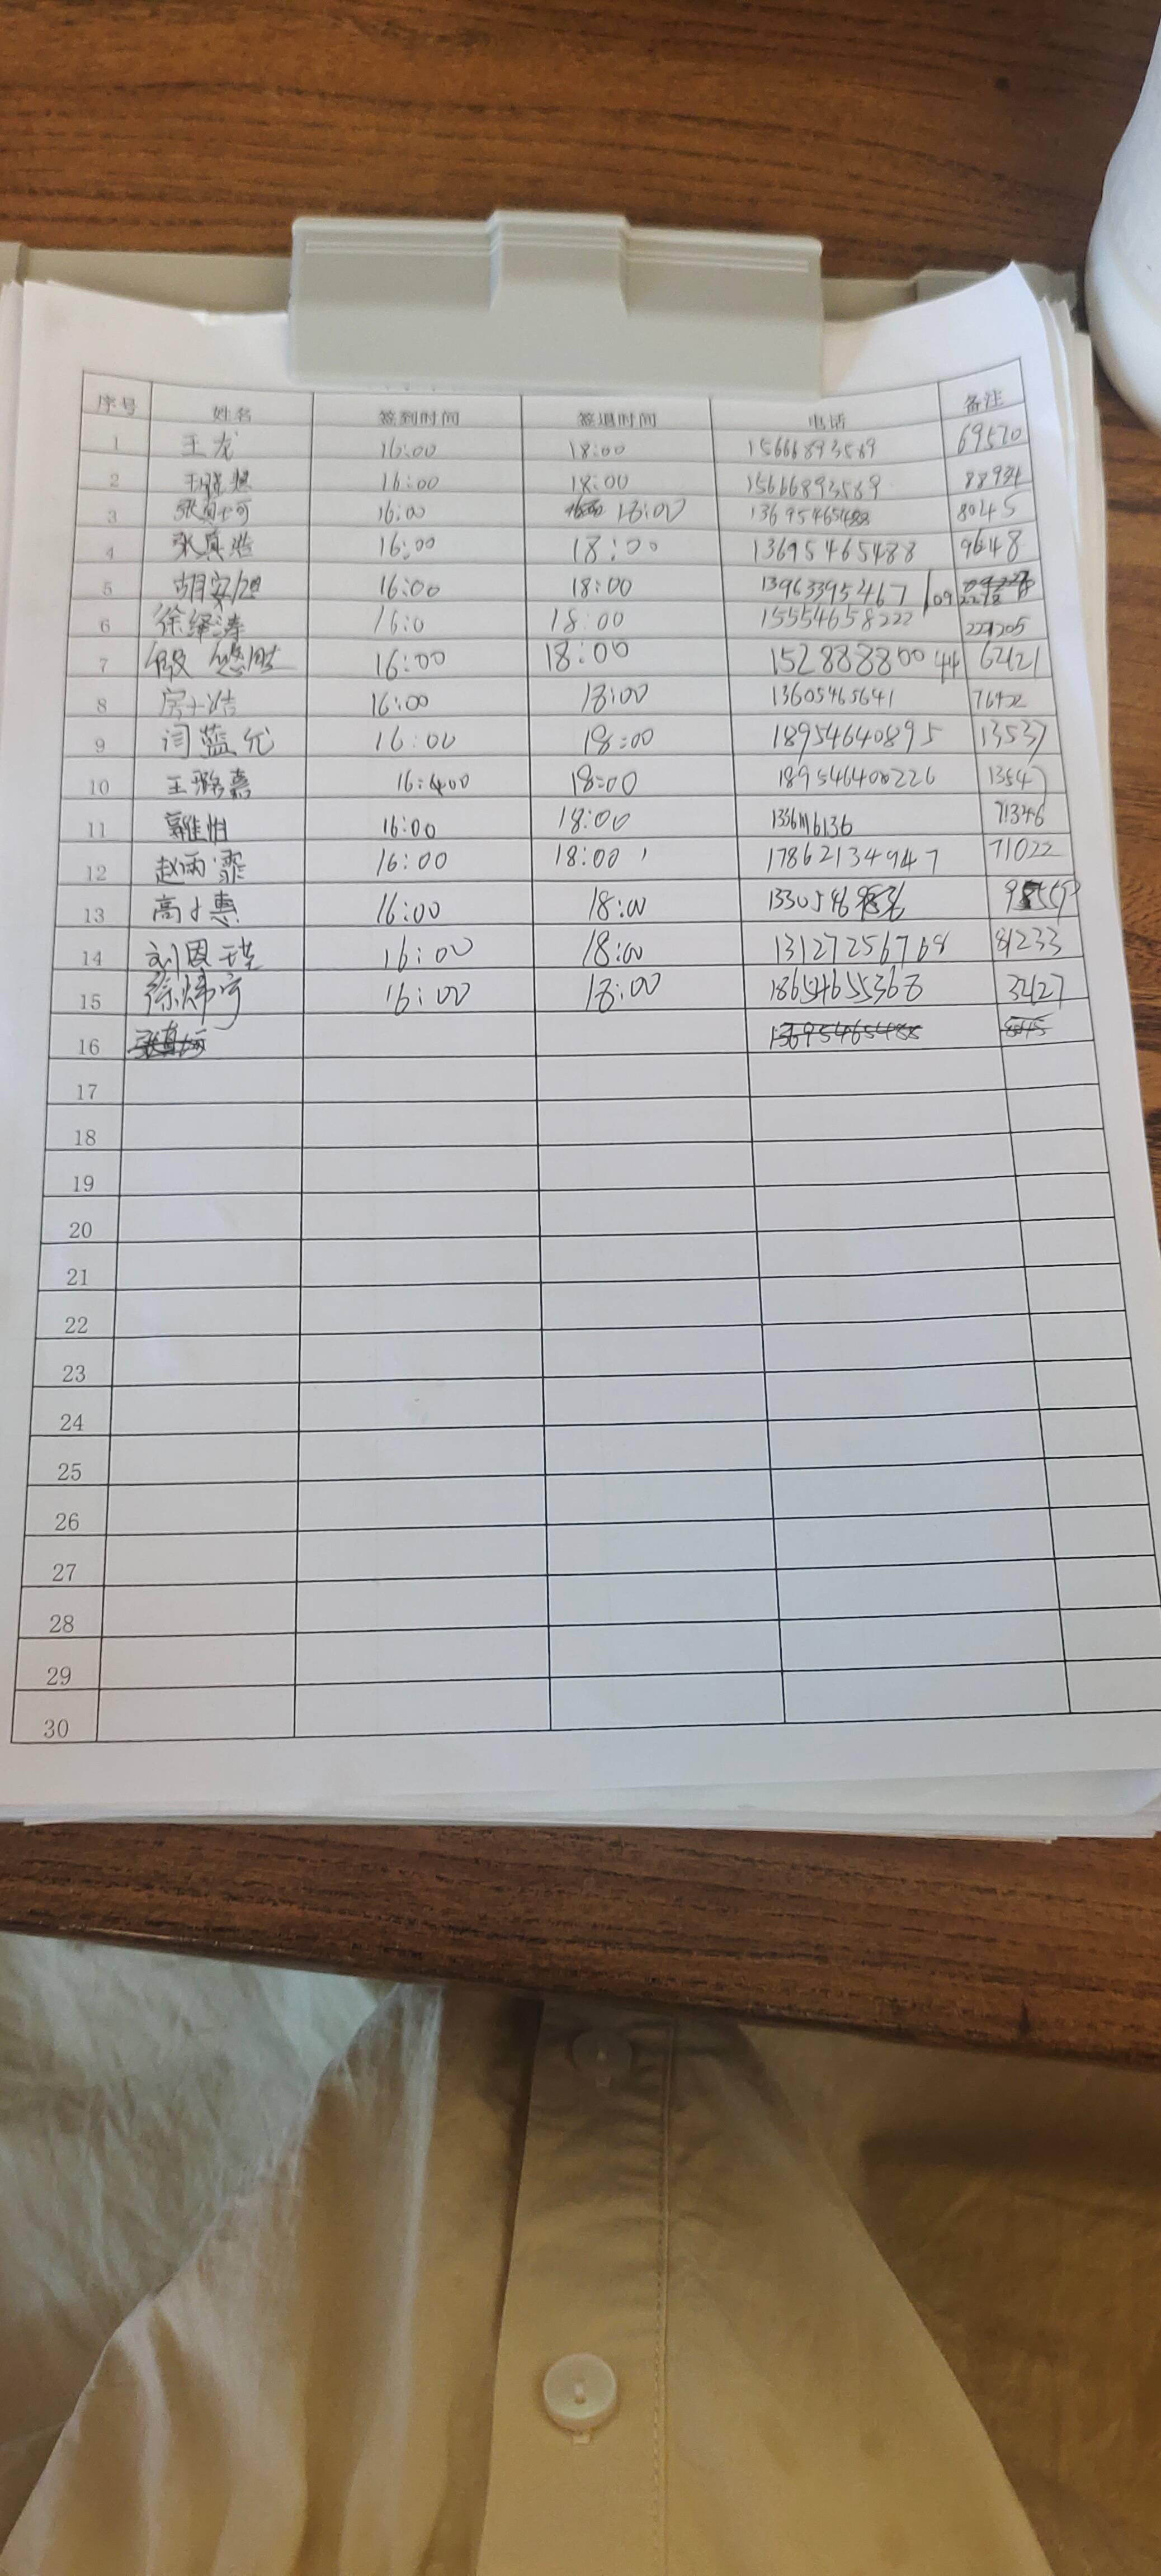 序号 姓名 签到时间 签退时间 电话 备注
1 王龙 16:00 18:00 15666893589 69570
2 16:00 18:00 15666893589 88934
3 张真可 16:00 18:00 80245
4 张真 16:00 18:00 13695465488 9648
5 胡安旭 16:00 18:00 13963395467
6 徐绎涛 16:0 18:00 15554658222 221205
7 段悠然 16:00 18:00 15288880044 62121
8 房小洁 16:00 18:00 13605465641 76422
9 闫蓝允 16:00 18:00 18954640895 13537
10 王璐嘉 18:00 189546400226 13547
11 16:00 18:00 71346
12 赵雨霏 16:00 18:00 17862134947 71022
13 高小惠 16:00 18:00
14 刘恩瑾 16:00 18:00 13127256768 81233
15 徐炜宁 16:00 18:00 18654655368 32127
16
17
18
19
20
21
22
23
24
25
26
27
28
29
30